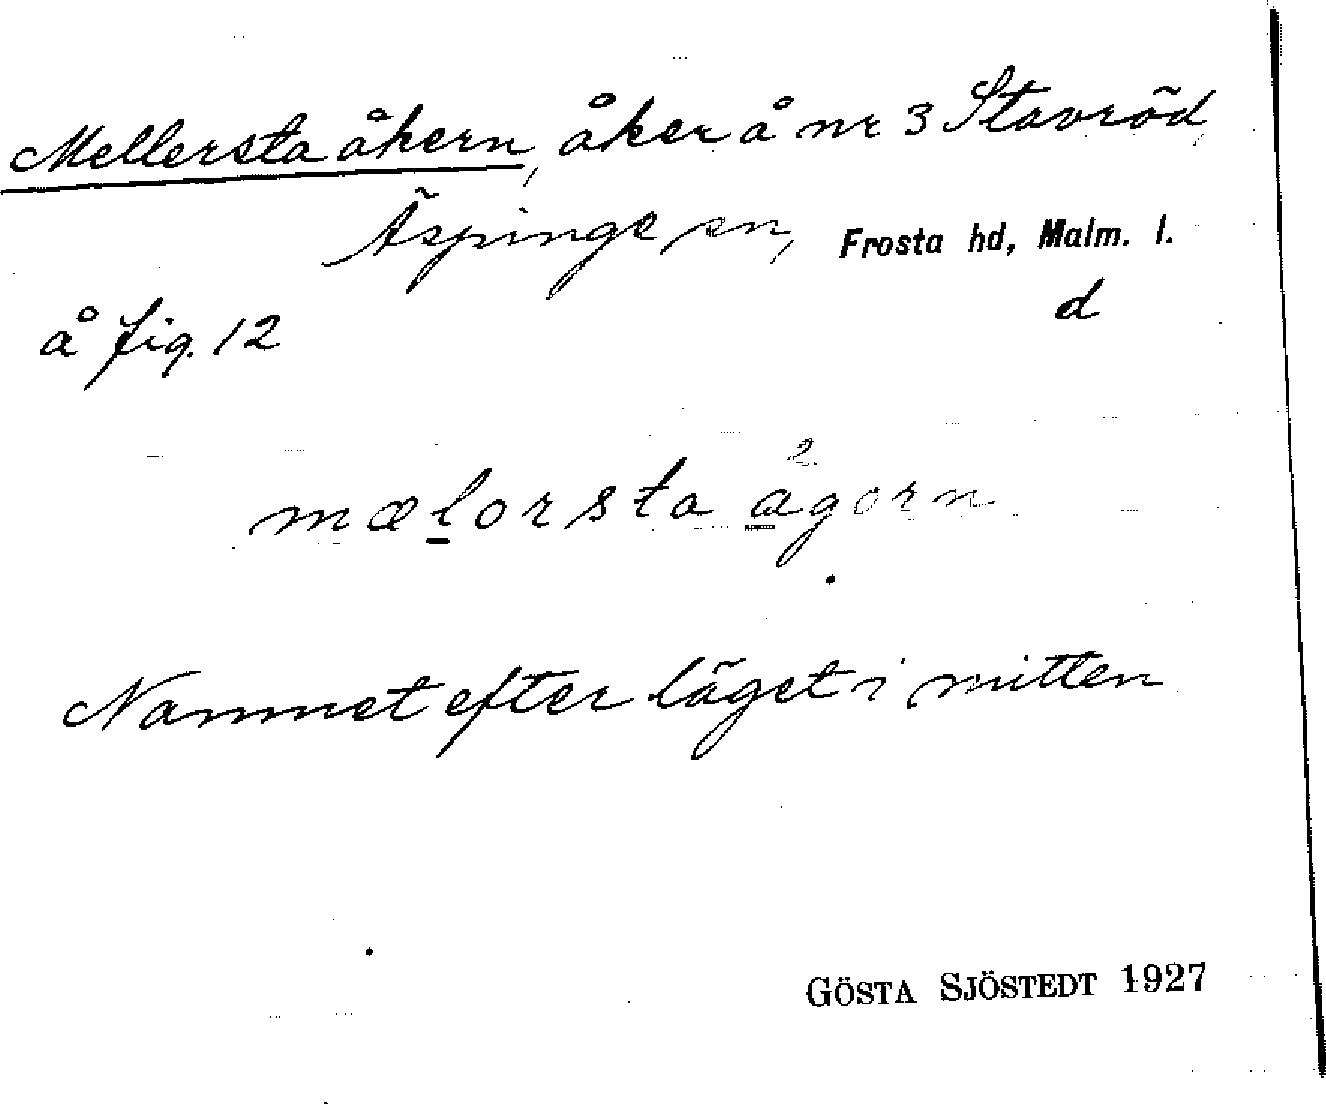 Mellersta åkern, åker å nr 3 Stavröd,
Äspinge sn, Frosta hd, Malm. l.
å fig. 12 d
mælorsta ågorn
2
Namnet efter läget i mitten
GÖSTA SJÖSTEDT 1927